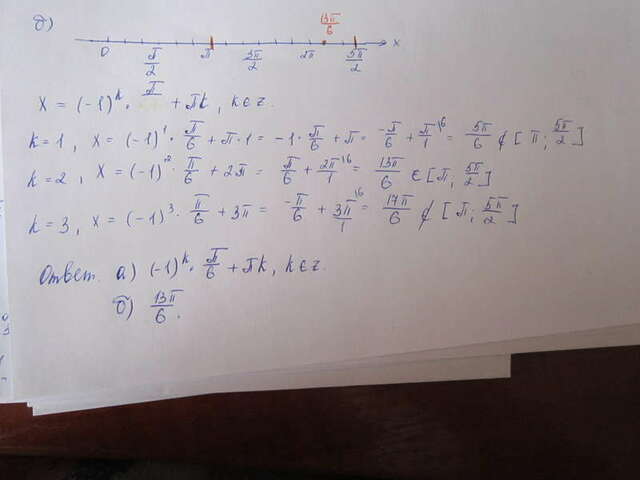 б)
13π/6
0 π/2 π 3π/2 2π 5π/2 x
x = (-1)^k · π/ + πk, k ∈ z.
k=1, x = (-1)^1 · π/6 + π·1 = -1·π/6 + π = -π/6 + π/1^(6 = 5π/6 ∉ [π; 5π/2]
k=2, x = (-1)^2 · π/6 + 2π = π/6 + 2π/1^(6 = 13π/6 ∈ [π; 5π/2]
k=3, x = (-1)^3 · π/6 + 3π = -π/6 + 3π/1^(6 = 17π/6 ∉ [π; 5π/2]
Ответ. а) (-1)^k · π/6 + πk, k ∈ z.
б) 13π/6.